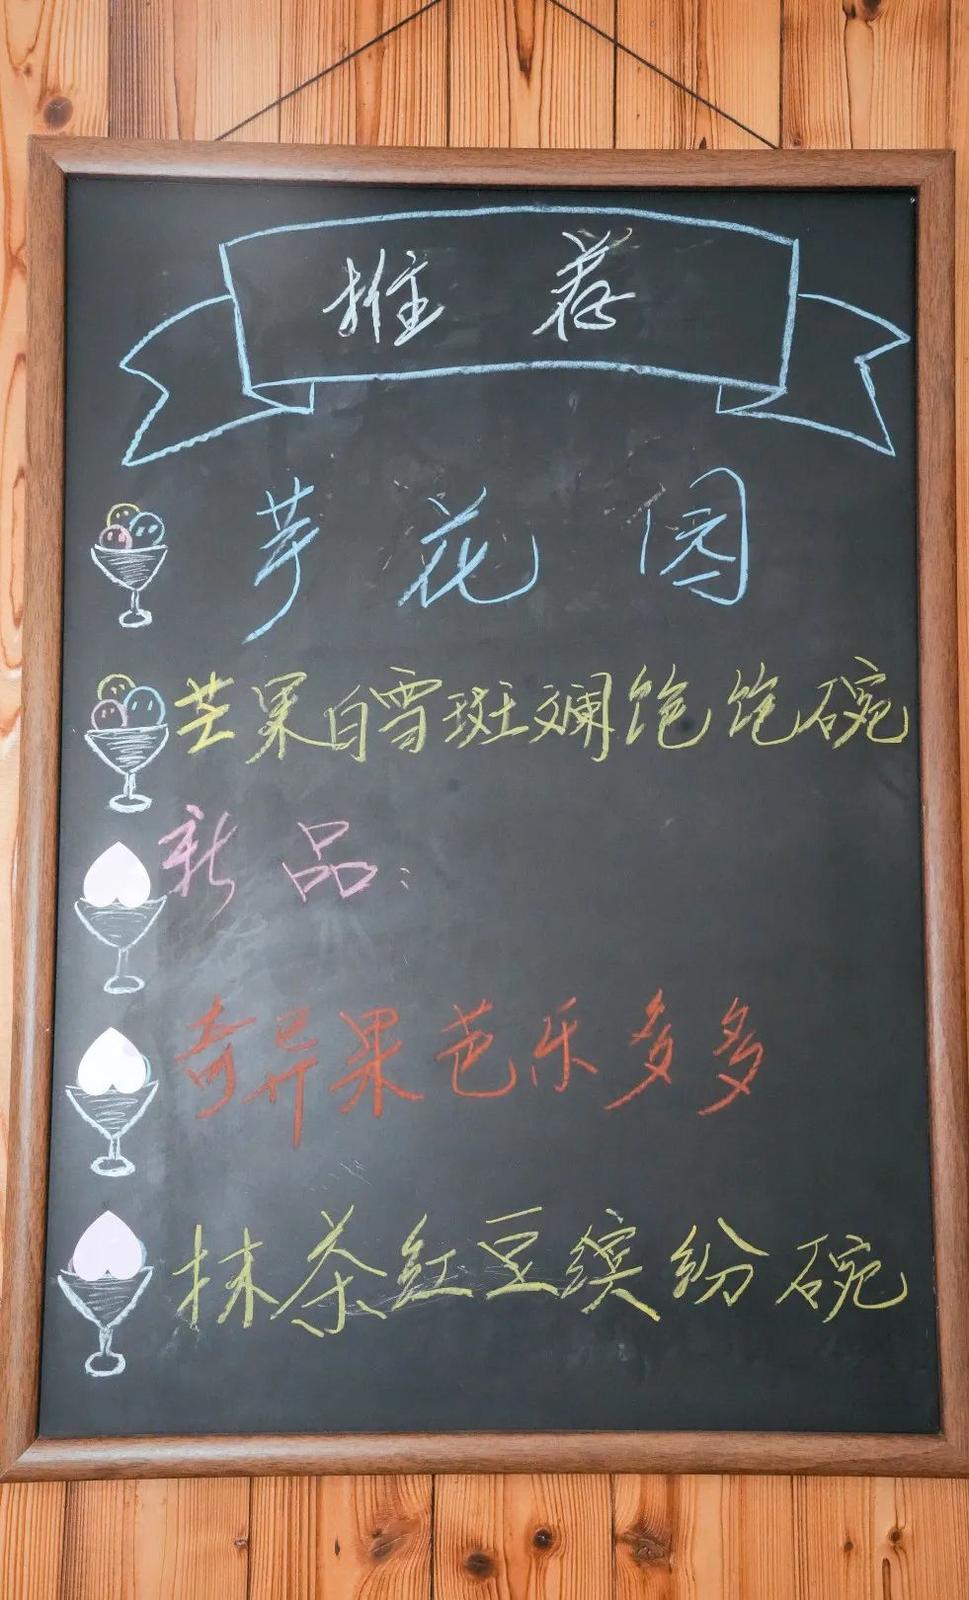 推荐
芋花园
芒果白雪斑斓饱饱碗
新品:
奇异果芭乐多多
抹茶红豆缤纷碗